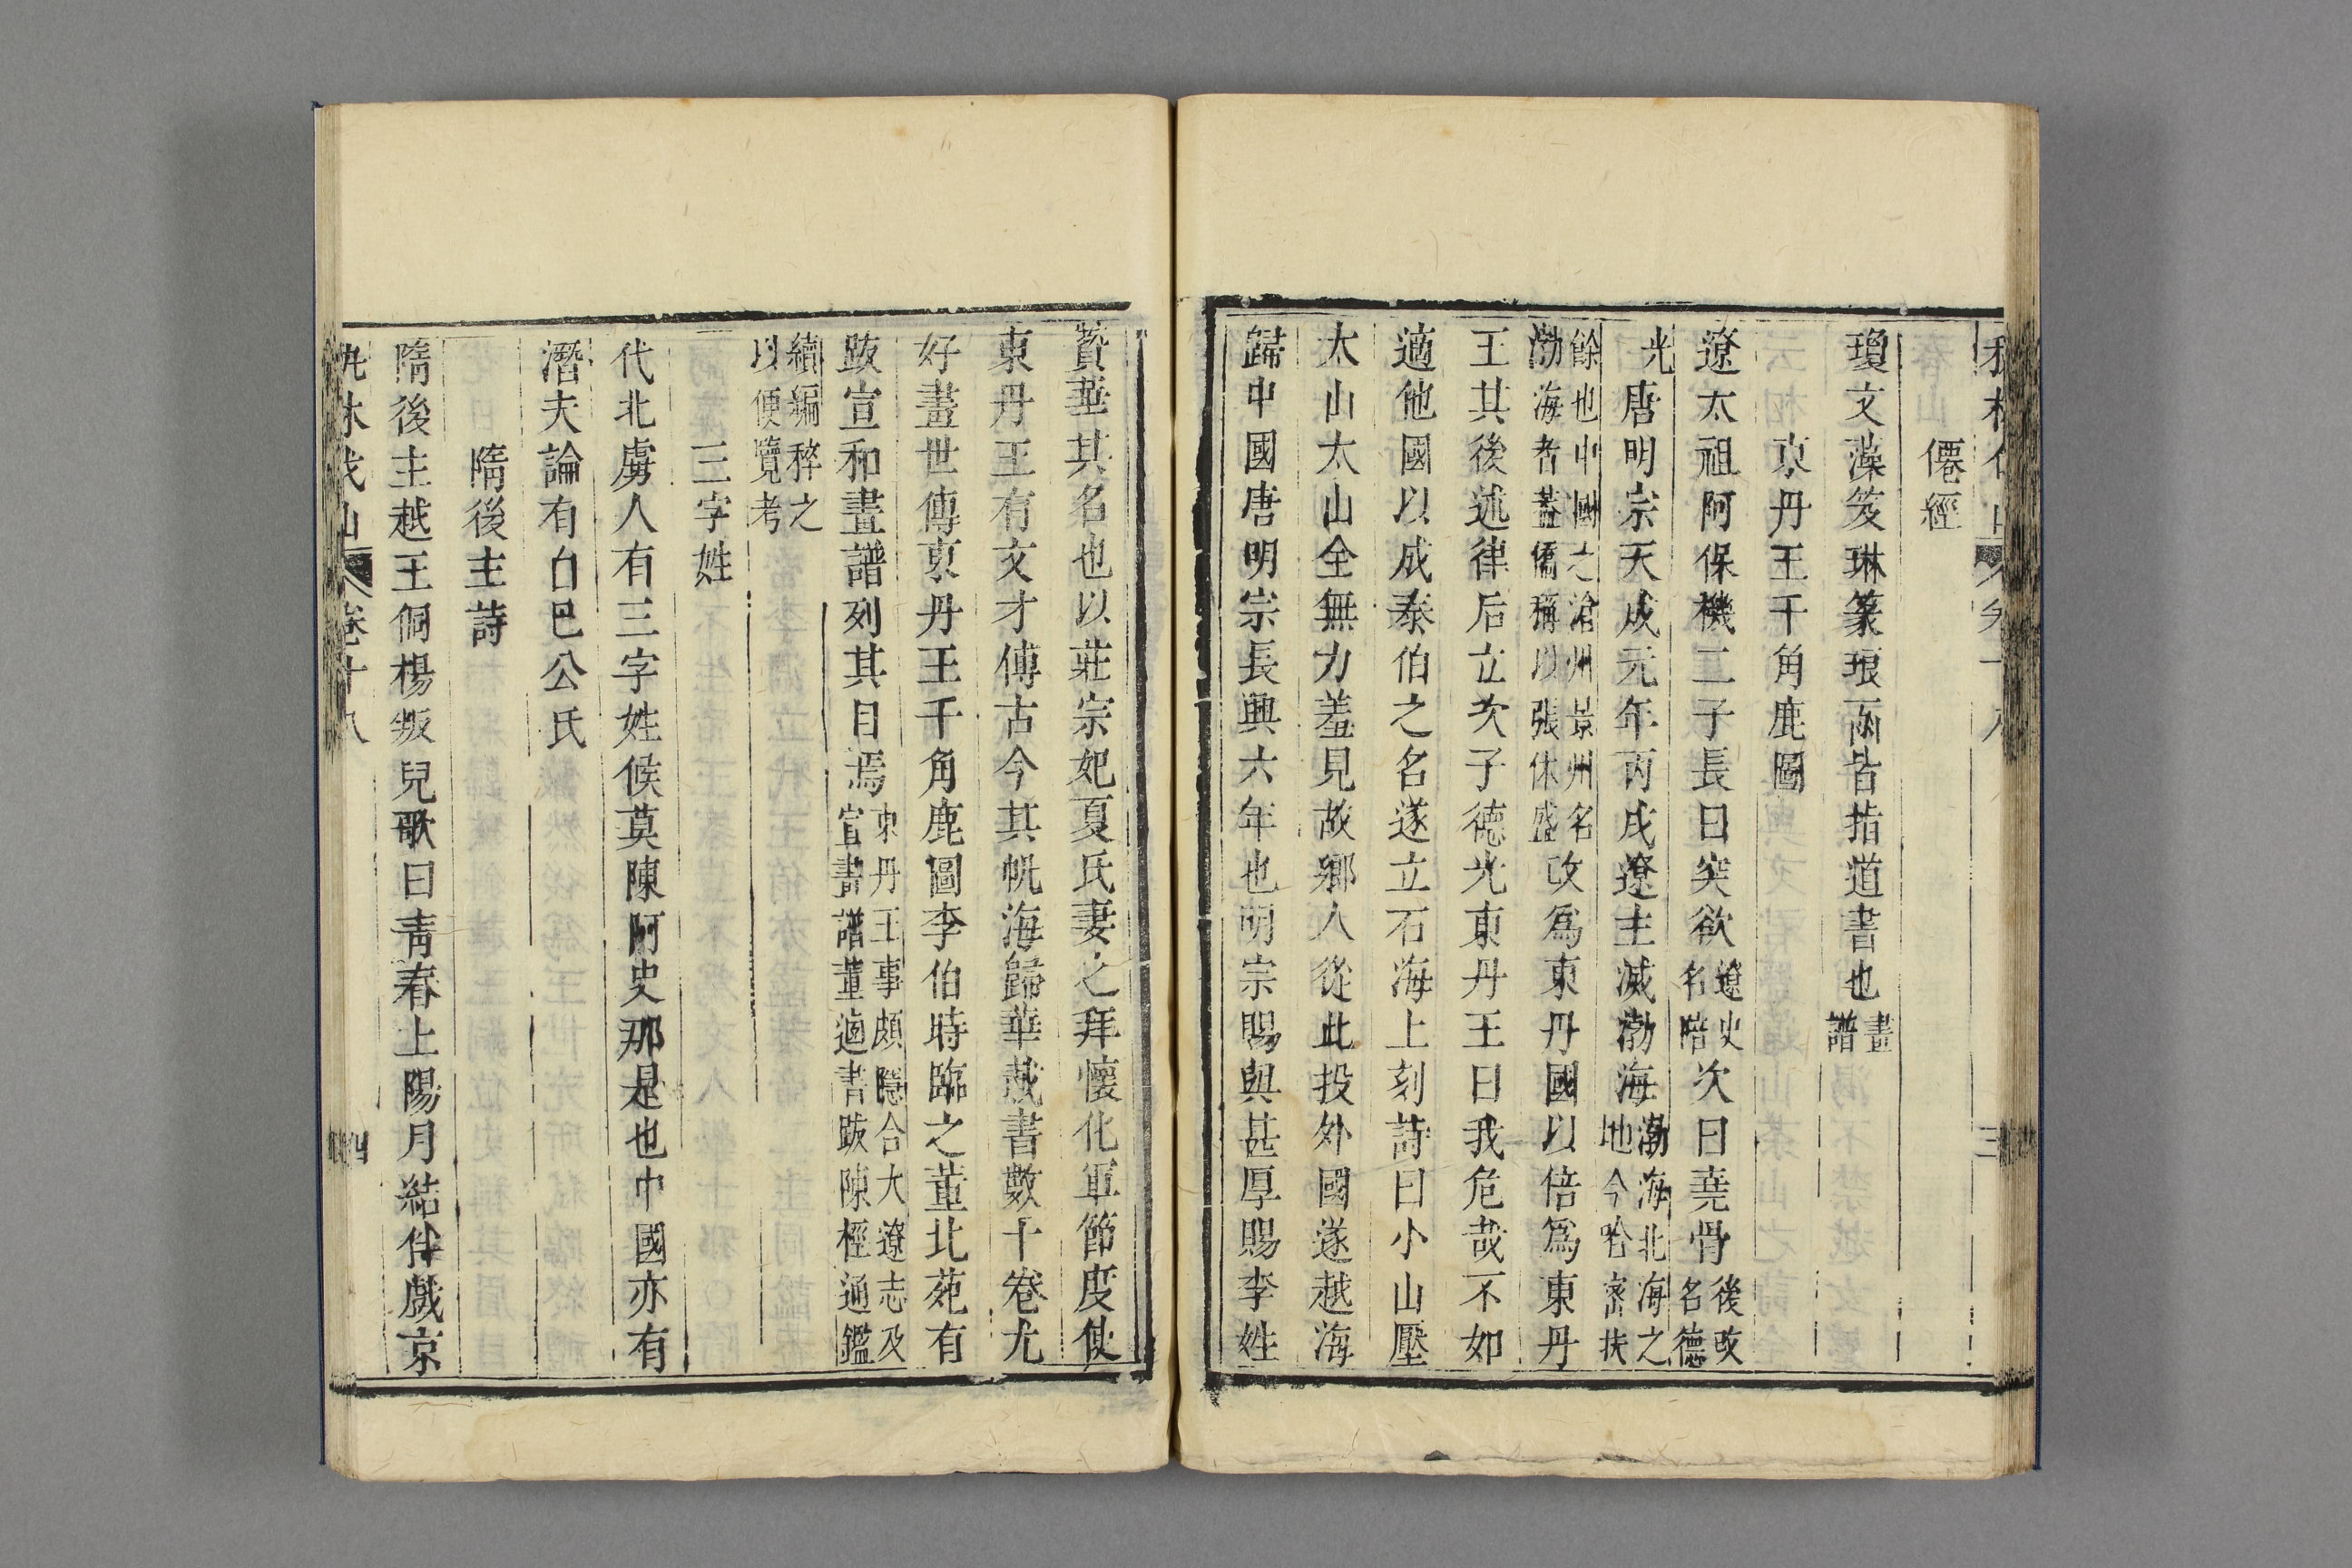 僊經
瓊文藻笈琳篆琅函皆指道書也畫譜
東丹王千角鹿圖
遼太祖阿保機二子長曰突欲遼史名陪次曰堯骨後改名德
光唐明宗天成元年丙戌遼主滅渤海渤海北海之地今哈密扶
餘也中國之滄州景州名渤海者蓋僑稱以張休盛改爲東丹國以倍爲東丹
王其後述律后立次子德光東丹王曰我危哉不如
適他國以成泰伯之名遂立石海上刻詩曰小山壓
大山大山全無力羞見故鄉人從此投外國遂越海
歸中國唐明宗長興六年也明宗賜與甚厚賜李姓
贊華其名也以莊宗妃夏氏妻之拜懷化軍節度使
東丹王有文才傅古今其帆海歸華載書數十卷尤
好畫世傳東丹王千角鹿圖李伯時臨之董北苑有
跋宣和畫譜列其目焉東丹王事頗隱合大遼志及宣畫譜董逌書跋陳桱通鑑
續編稡之以便覽考
三字姓
代北虜人有三字姓侯莫陳阿史那是也中國亦有
潛夫論有白巴公氏
隋後主詩
隋後主越王侗楊叛兒歌曰青春上陽月結伴戲京
卷十八
四